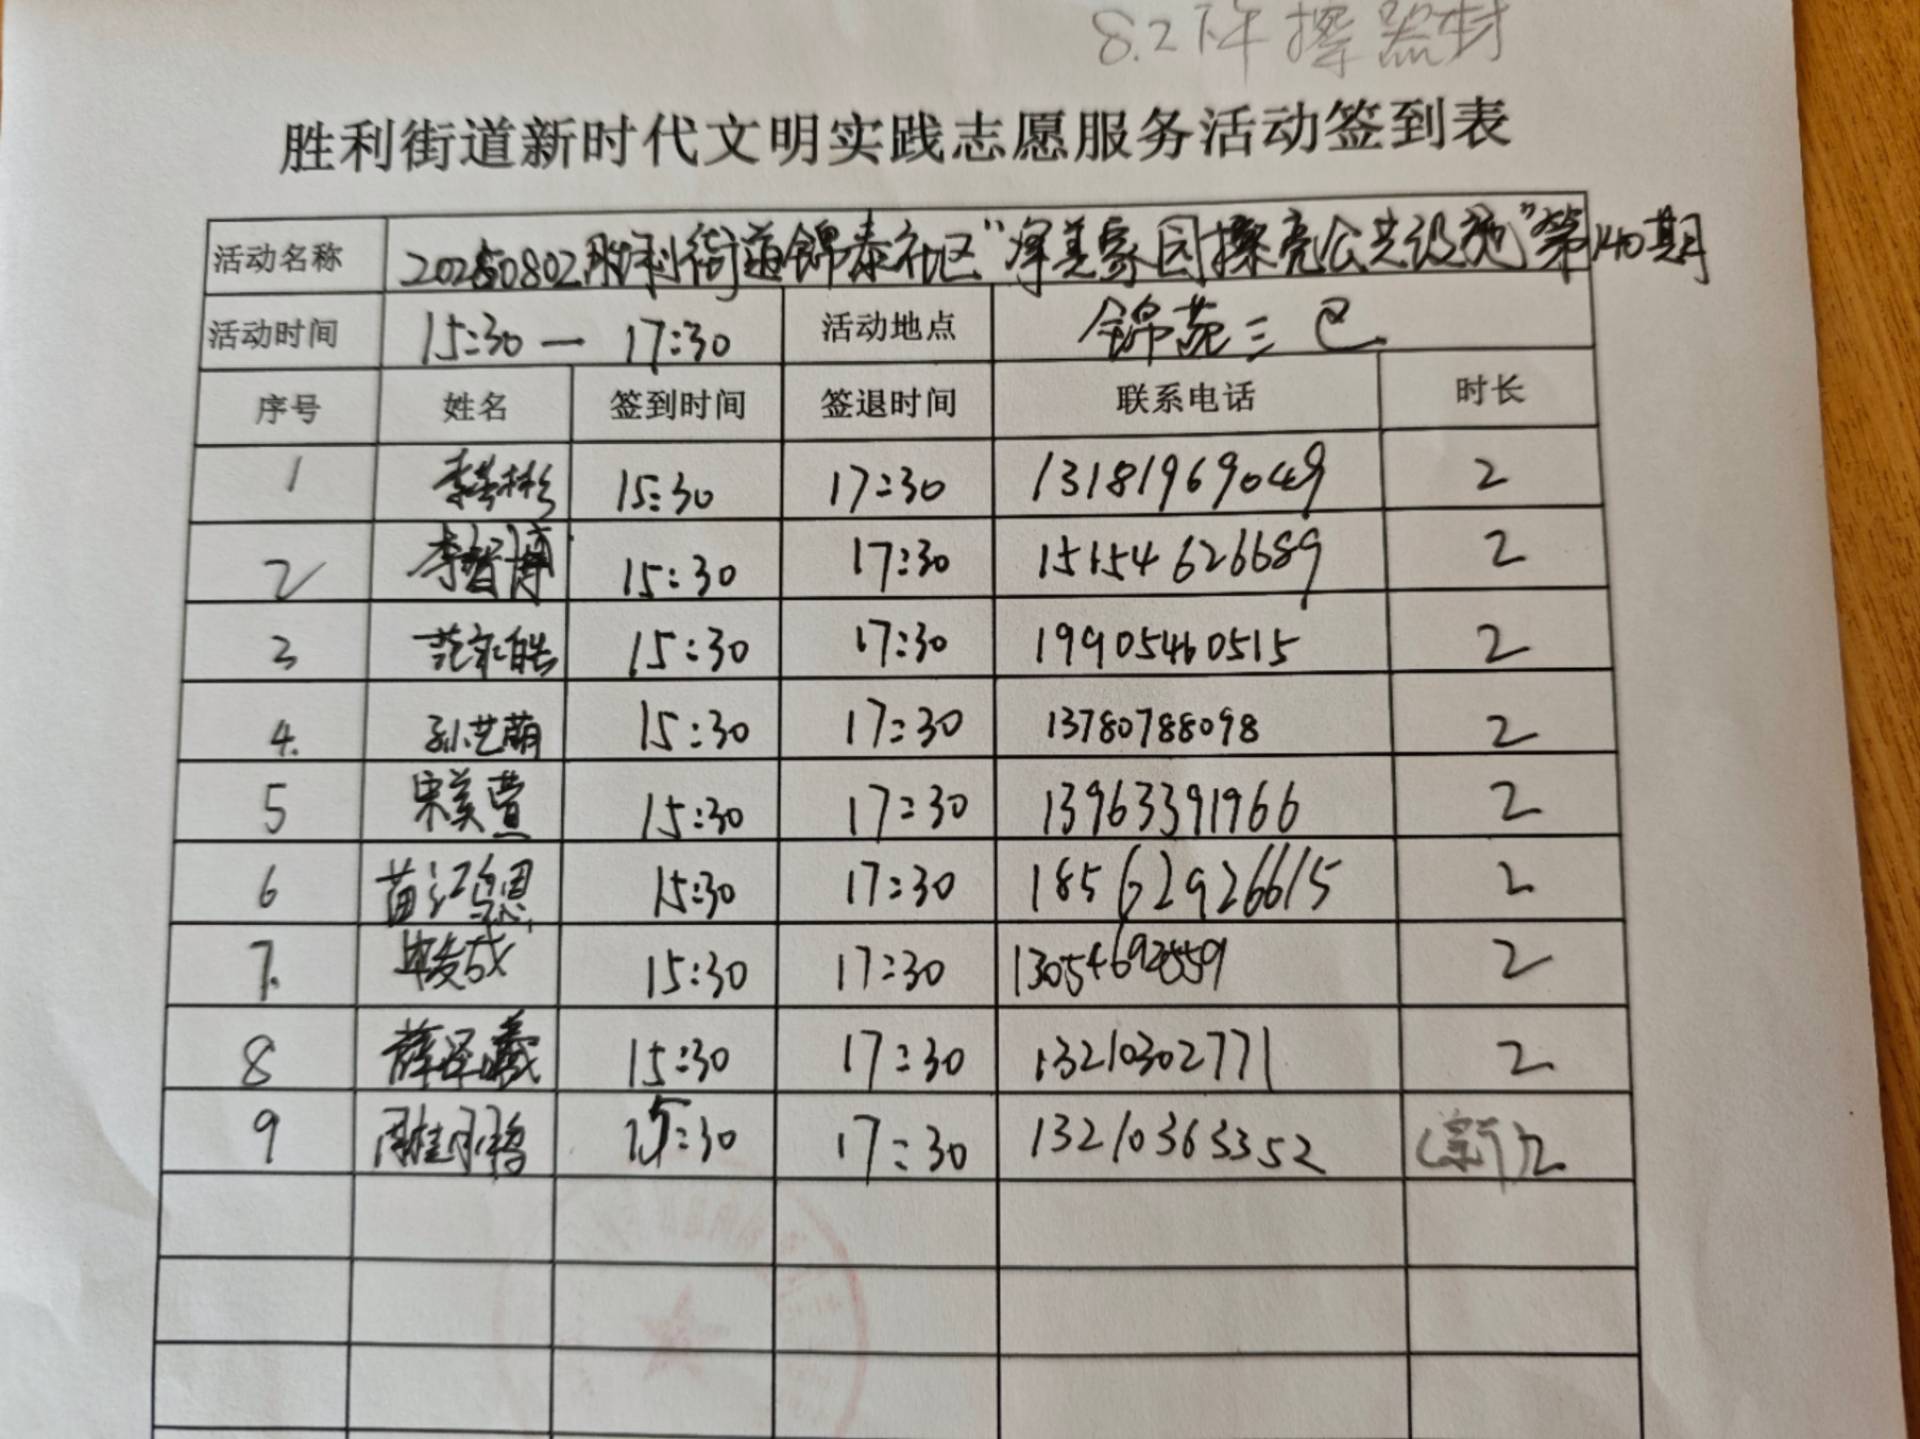 8.2下午擦器材
胜利街道新时代文明实践志愿服务活动签到表
活动名称 20250802胜利街道锦泰社区“净美家园擦亮公共设施”第140期
活动时间 15:30 — 17:30 活动地点 锦苑三
序号 姓名 签到时间 签退时间 联系电话 时长
1 15:30 17:30 13181969049 2
2 李智博 15:30 17:30 15154626689 2
3 15:30 17:30 19905460515 2
4. 孙艺萌 15:30 17:30 13780788098 2
5 宋美萱 15:30 17:30 13963391966 2
6 15:30 17:30 18562926615 2
7. 15:30 17:30 2
8 薛泽曦 15:30 17:30 13210302771 2
9 15:30 17:30 13210363352 (新)2